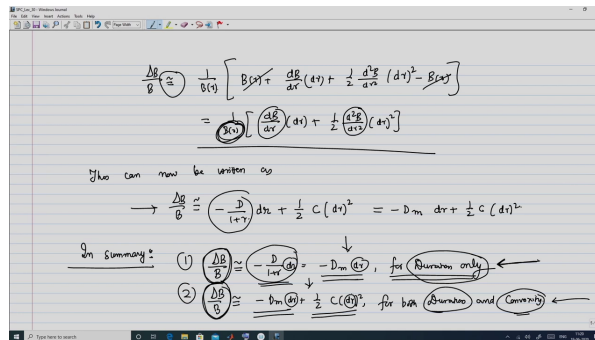 SPC_Lec_30 - Windows Journal
File Edit View Insert Actions Tools Help
Page Width
ΔB/B ≅ 1/B(r) [ B(r) + dB/dr (dr) + 1/2 d²B/dr² (dr)² - B(r) ]
= 1/B(r) [ dB/dr (dr) + 1/2 d²B/dr² (dr)² ]
This can now be written as
→ ΔB/B ≅ - D/1+r dr + 1/2 C (dr)² = - Dm dr + 1/2 C (dr)²
In Summary: ① ΔB/B ≅ - D/1+r dr = - Dm dr, for Duration only ←
② ΔB/B ≅ - Dm dr + 1/2 C(dr)², for both Duration and Convexity ←
Type here to search
ENG